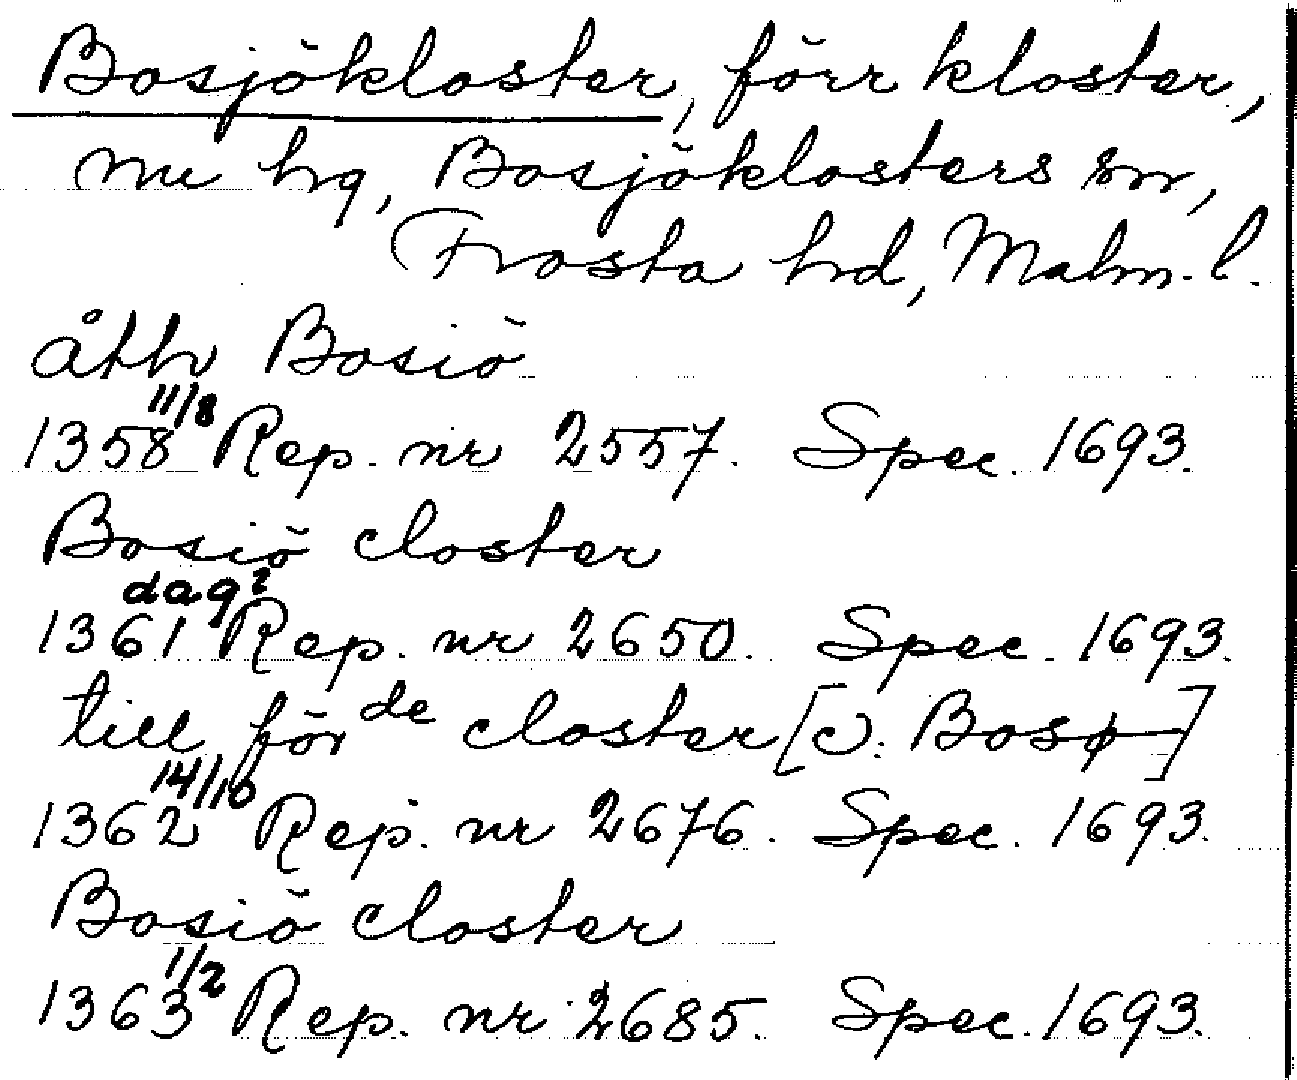 Bosjökloster, förr kloster,
nu hg, Bosjöklosters sn,
Frosta hd, Malm. l.
åth Bosiö
1358 11/8 Rep. nr 2557. Spec. 1693.
Bosiö closter
1361 dag? Rep. nr 2650. Spec. 1693.
till förde closter [ɔ: Bosø]
1362 14/10 Rep. nr 2676. Spec. 1693.
Bosiö closter
1363 1/2 Rep. nr 2685. Spec. 1693.